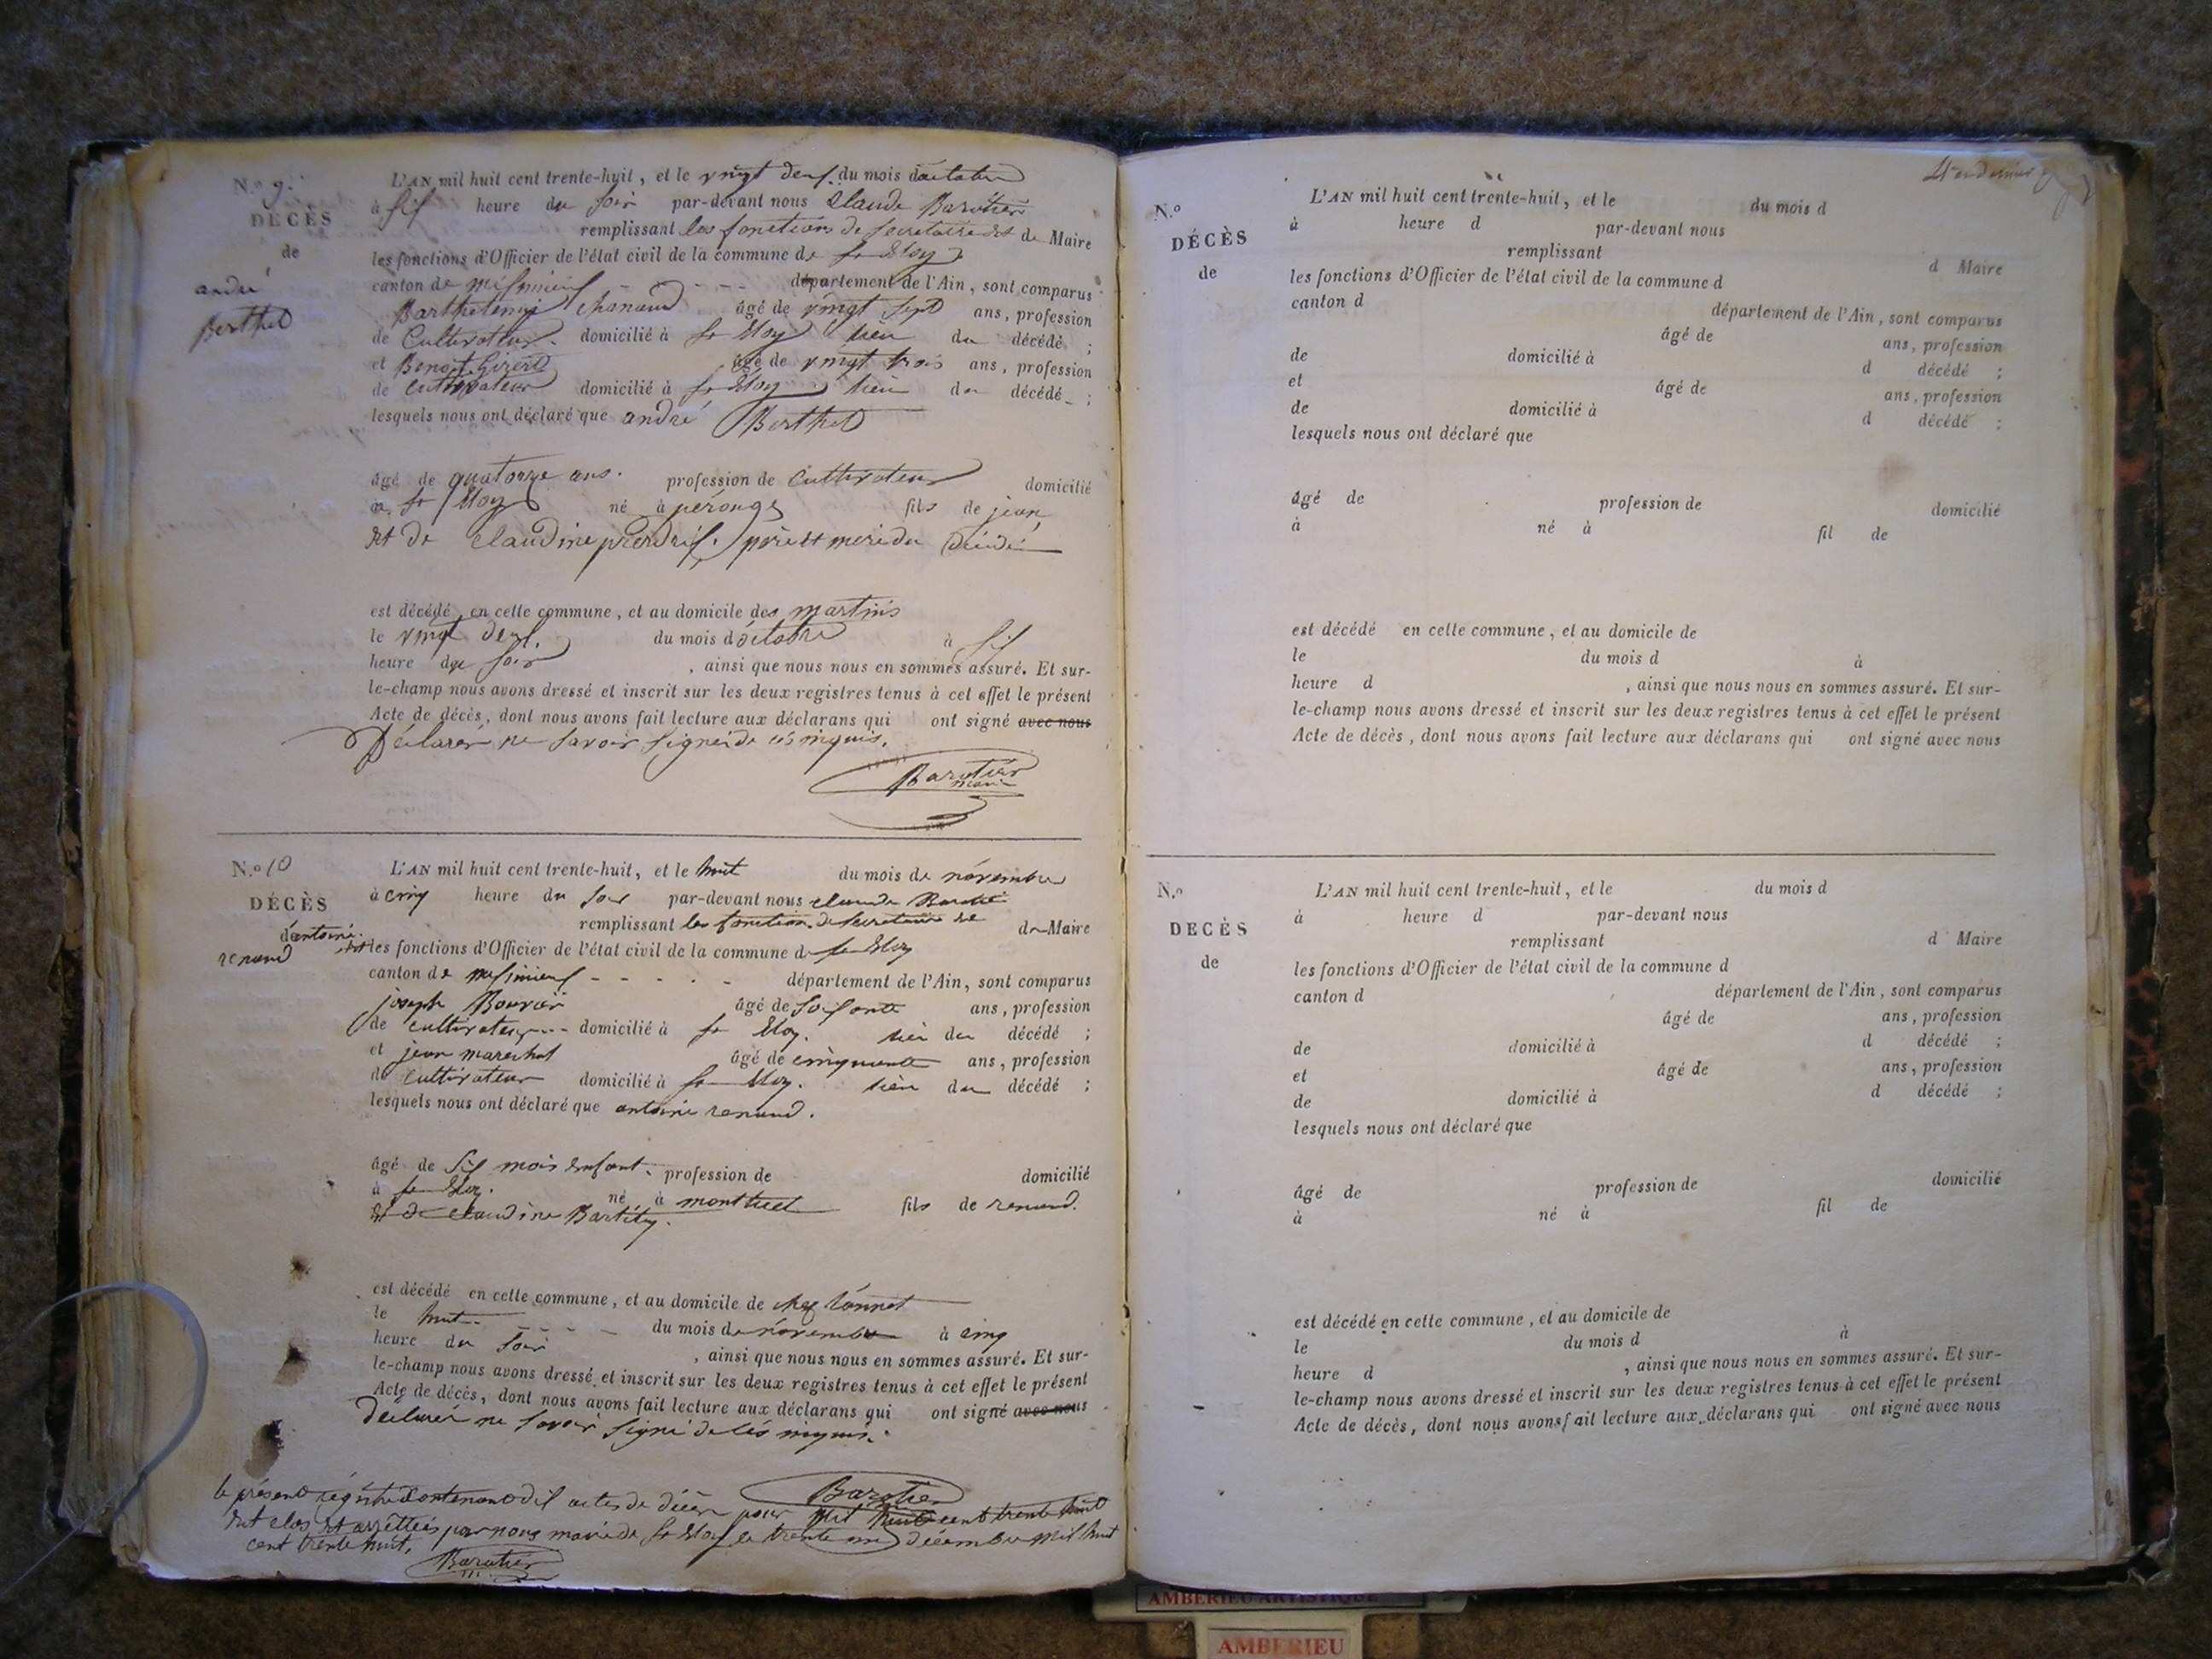 N.º 9.
DÉCÈS
de
andré
Berthet
L'AN mil huit cent trente-huit, et le vingt deux du mois d'octobre
à six heure du soir par-devant nous Claude Barotier
remplissant les fonctions de secretaire et de Maire
les fonctions d'Officier de l'état civil de la commune de st Eloy
canton de meximieux - - - département de l'Ain, sont comparus
Barthelemy chanaud âgé de vingt sept ans, profession
de Cultivateur. domicilié à st Eloy du décédé ;
et Benoit âgé de vingt trois ans, profession
de cultivateur domicilié à st Eloy du décédé ;
lesquels nous ont déclaré que andré Berthet
âgé de quatorze ans. profession de Cultivateur domicilié
à st Eloy né à pérouges fils de jean
et de claudine perdrix. père et mere du décédé
est décédé, en cette commune, et au domicile des martins
le vingt deux. du mois d'octobre à six
heure du soir , ainsi que nous nous en sommes assuré. Et sur-
le-champ nous avons dressé et inscrit sur les deux registres tenus à cet effet le présent
Acte de décès, dont nous avons fait lecture aux déclarans qui ont signé avec nous
Déclaré ne savoir signé de ce requis.
Barotier
maire
N.º 10
DÉCÈS
d'antoine
renaud
L'AN mil huit cent trente-huit, et le huit du mois de novembre
à cinq heure du soir par-devant nous claude Barotier
remplissant les fonction de secretaire et de Maire
les fonctions d'Officier de l'état civil de la commune de st Eloy
canton de meximieux - - - - - département de l'Ain, sont comparus
joseph Bouvier âgé de soixante ans, profession
de cultivateur --- domicilié à st Eloy. du décédé ;
et jean marechal âgé de cinquante ans, profession
de cultivateur domicilié à st Eloy. du décédé ;
lesquels nous ont déclaré que antoine renaud.
âgé de six mois enfant. profession de domicilié
à st Eloy. né à montluel fils de renaud.
et de claudine
est décédé en cette commune, et au domicile de chez
le huit - - - - du mois de novembre à cinq
heure du soir , ainsi que nous nous en sommes assuré. Et sur-
le-champ nous avons dressé et inscrit sur les deux registres tenus à cet effet le présent
Acte de décès, dont nous avons fait lecture aux déclarans qui ont signé avec nous
Déclaré ne savoir signé de ce requis.
Barotier
le présent registre contenant dix actes de décès pour mil huit cent trente huit
est clos et arrêttés par nous maire de st Eloy le trente un décembre mil huit
cent trente huit.
Barotier
N.º
DÉCÈS
de
L'AN mil huit cent trente-huit, et le du mois d
à heure d par-devant nous
remplissant d Maire
les fonctions d'Officier de l'état civil de la commune d
canton d département de l'Ain, sont comparus
âgé de ans, profession
de domicilié à d décédé ;
et âgé de ans, profession
de domicilié à d décédé ;
lesquels nous ont déclaré que
âgé de profession de domicilié
à né à fil de
est décédé en cette commune, et au domicile de
le du mois d à
heure d , ainsi que nous nous en sommes assuré. Et sur-
le-champ nous avons dressé et inscrit sur les deux registres tenus à cet effet le présent
Acte de décès, dont nous avons fait lecture aux déclarans qui ont signé avec nous
N.º
DÉCÈS
de
L'AN mil huit cent trente-huit, et le du mois d
à heure d par-devant nous
remplissant d Maire
les fonctions d'Officier de l'état civil de la commune d
canton d département de l'Ain, sont comparus
âgé de ans, profession
de domicilié à d décédé ;
et âgé de ans, profession
de domicilié à d décédé ;
lesquels nous ont déclaré que
âgé de profession de domicilié
à né à fil de
est décédé en cette commune, et au domicile de
le du mois d à
heure d , ainsi que nous nous en sommes assuré. Et sur-
le-champ nous avons dressé et inscrit sur les deux registres tenus à cet effet le présent
Acte de décès, dont nous avons fait lecture aux déclarans qui ont signé avec nous
AMBERIEU ARTISTIQUE
AMBERIEU